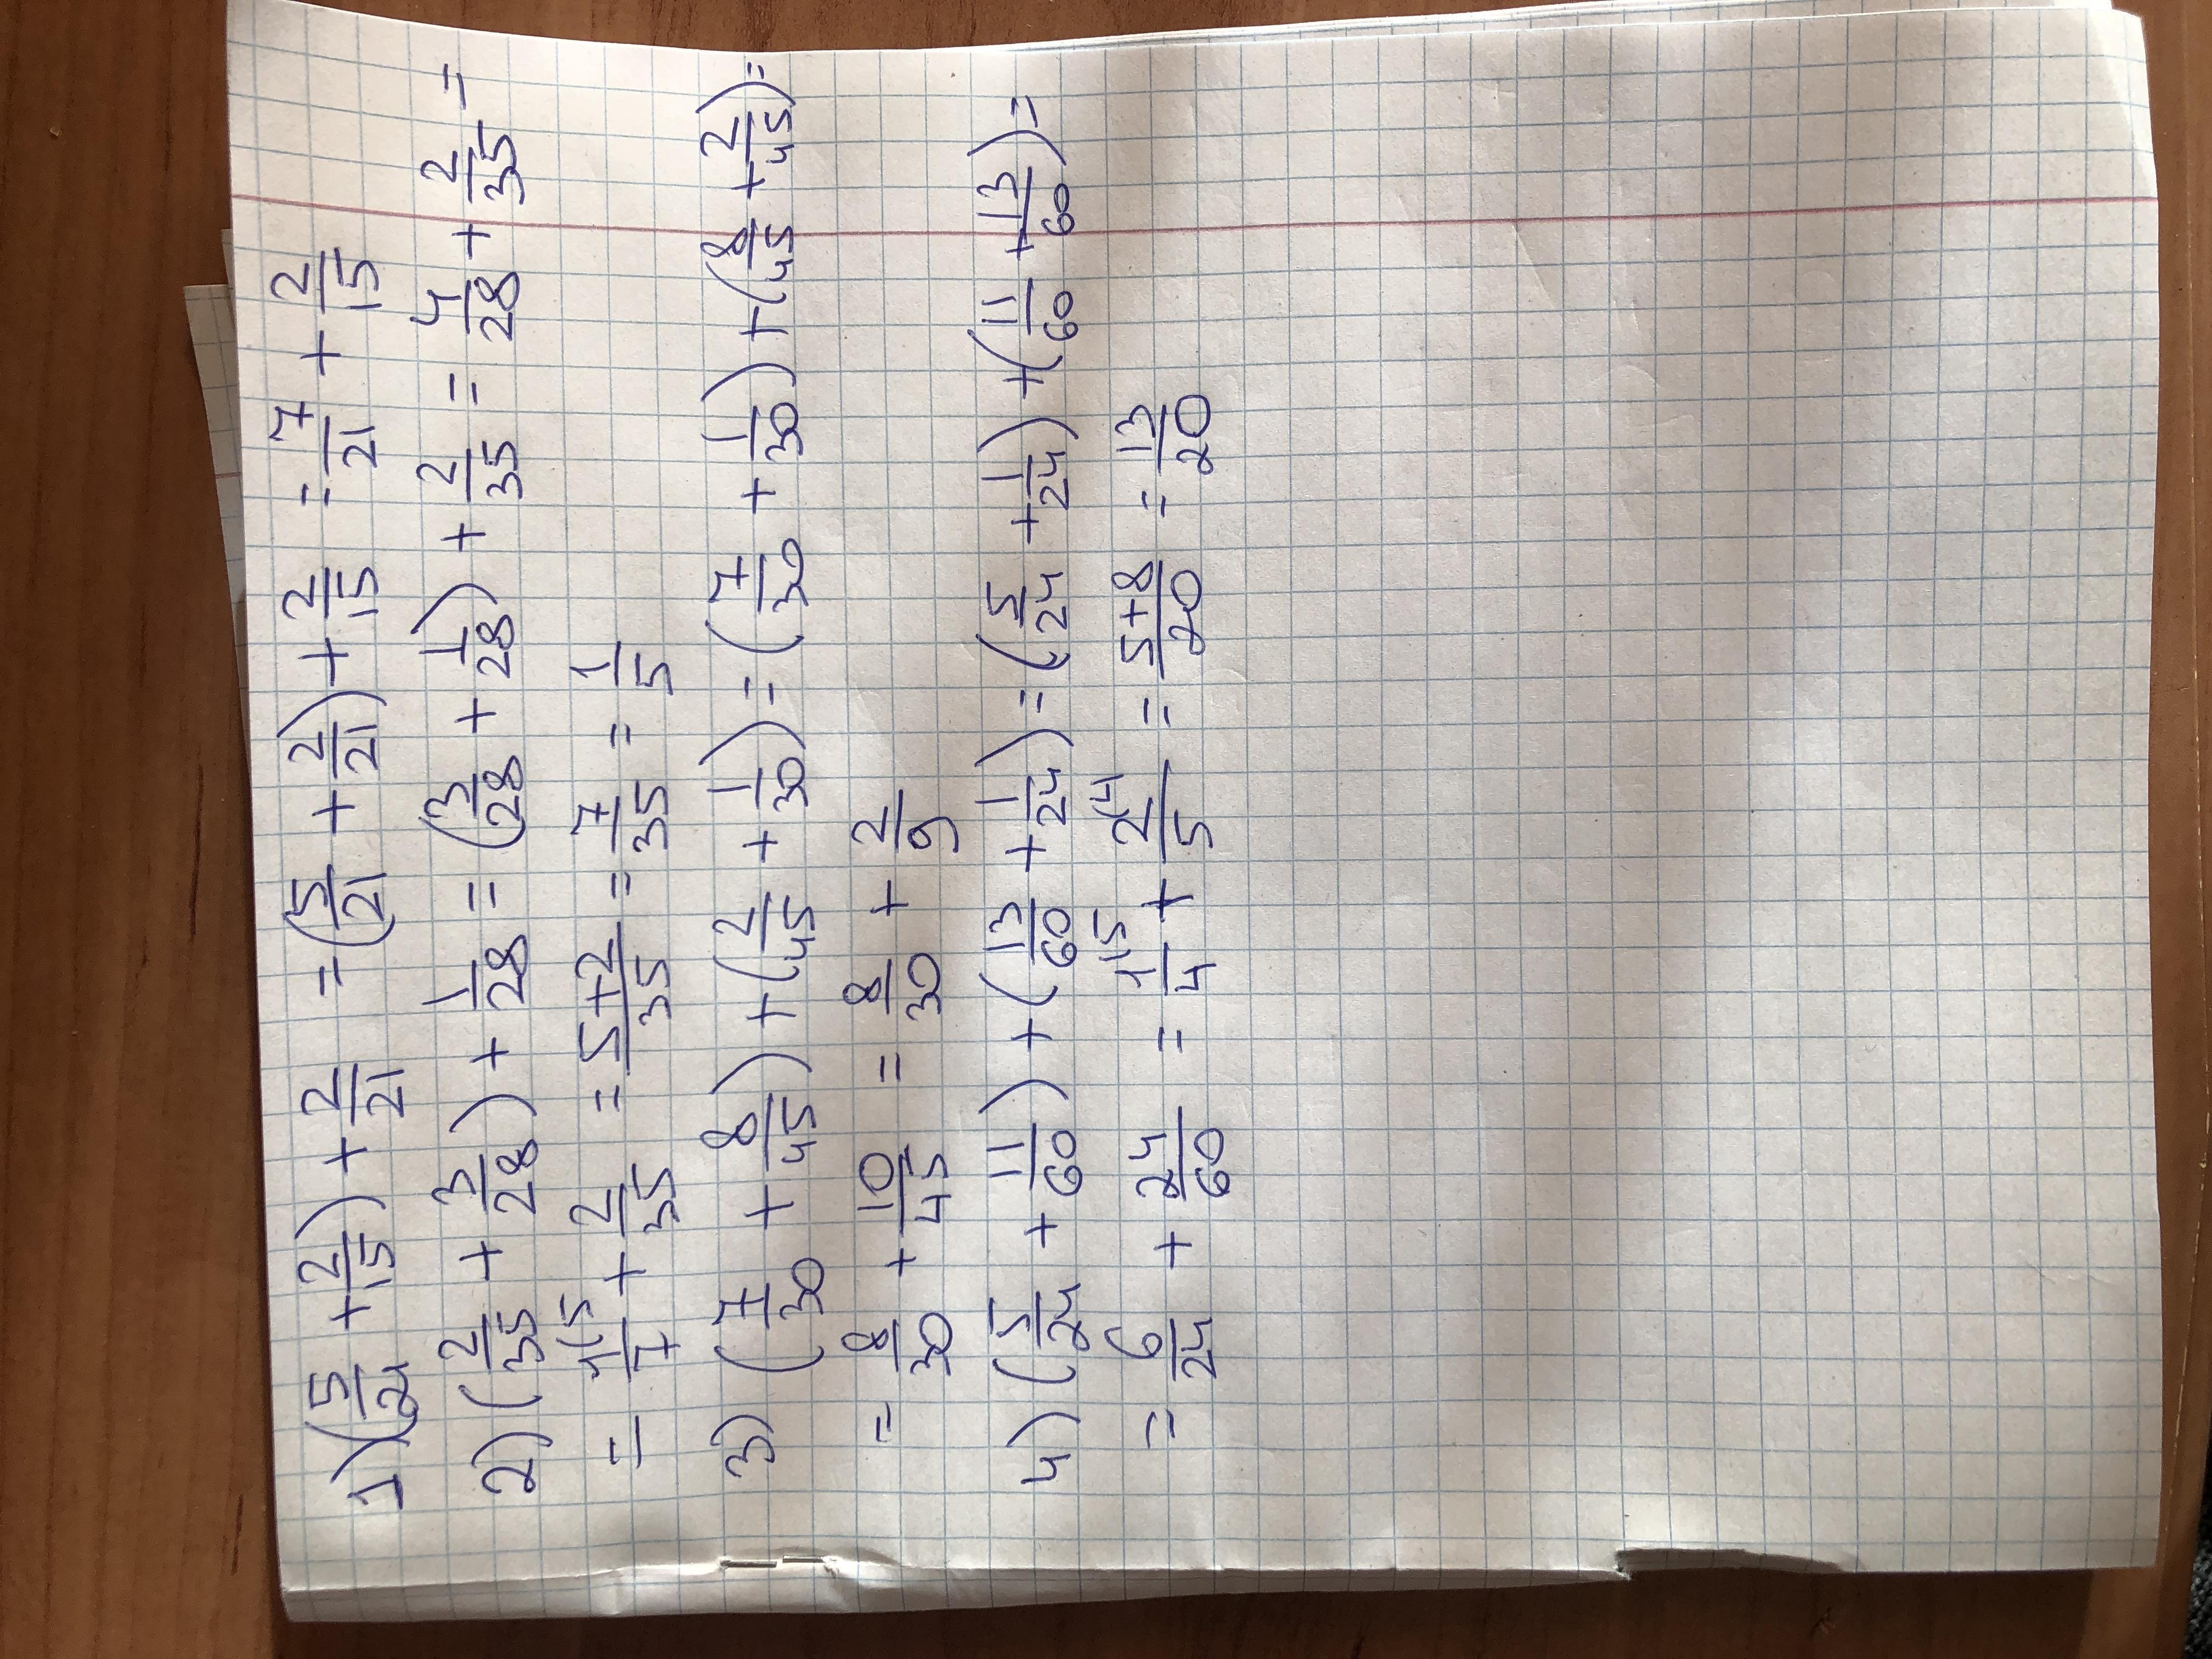 1) (5/21 + 2/15) + 2/21 = (5/21 + 2/21) + 2/15 = 7/21 + 2/15
2) (2/35 + 3/28) + 1/28 = (3/28 + 1/28) + 2/35 = 4/28 + 2/35 =
= 1(5/7 + 2/35 = 5+2/35 = 7/35 = 1/5
3) (7/30 + 8/45) + (2/45 + 1/30) = (7/30 + 1/30) + (8/45 + 2/45) =
= 8/30 + 10/45 = 8/30 + 2/9
4) (5/24 + 11/60) + (13/60 + 1/24) = (5/24 + 1/24) + (11/60 + 13/60) =
= 6/24 + 24/60 = 1(5/4 + 2(4/5 = 5+8/20 = 13/20